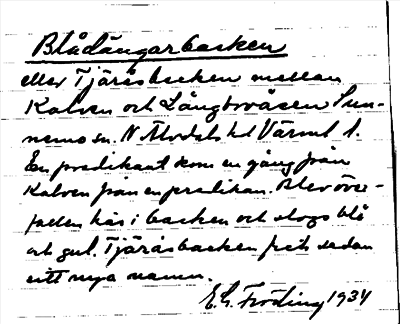 Blådängarbacken
eller Tjäråsbacken mellan
Kalven och Långbråsen Sun-
nemo sn. N Älvdals hd Värml l.
En predikant kom en gång från
Kalven från en predikan. Blev över-
fallen här i backen och slogs blå
och gul. Tjäråsbacken fick sedan
sitt nya namn.
E. G. Fröding 1934